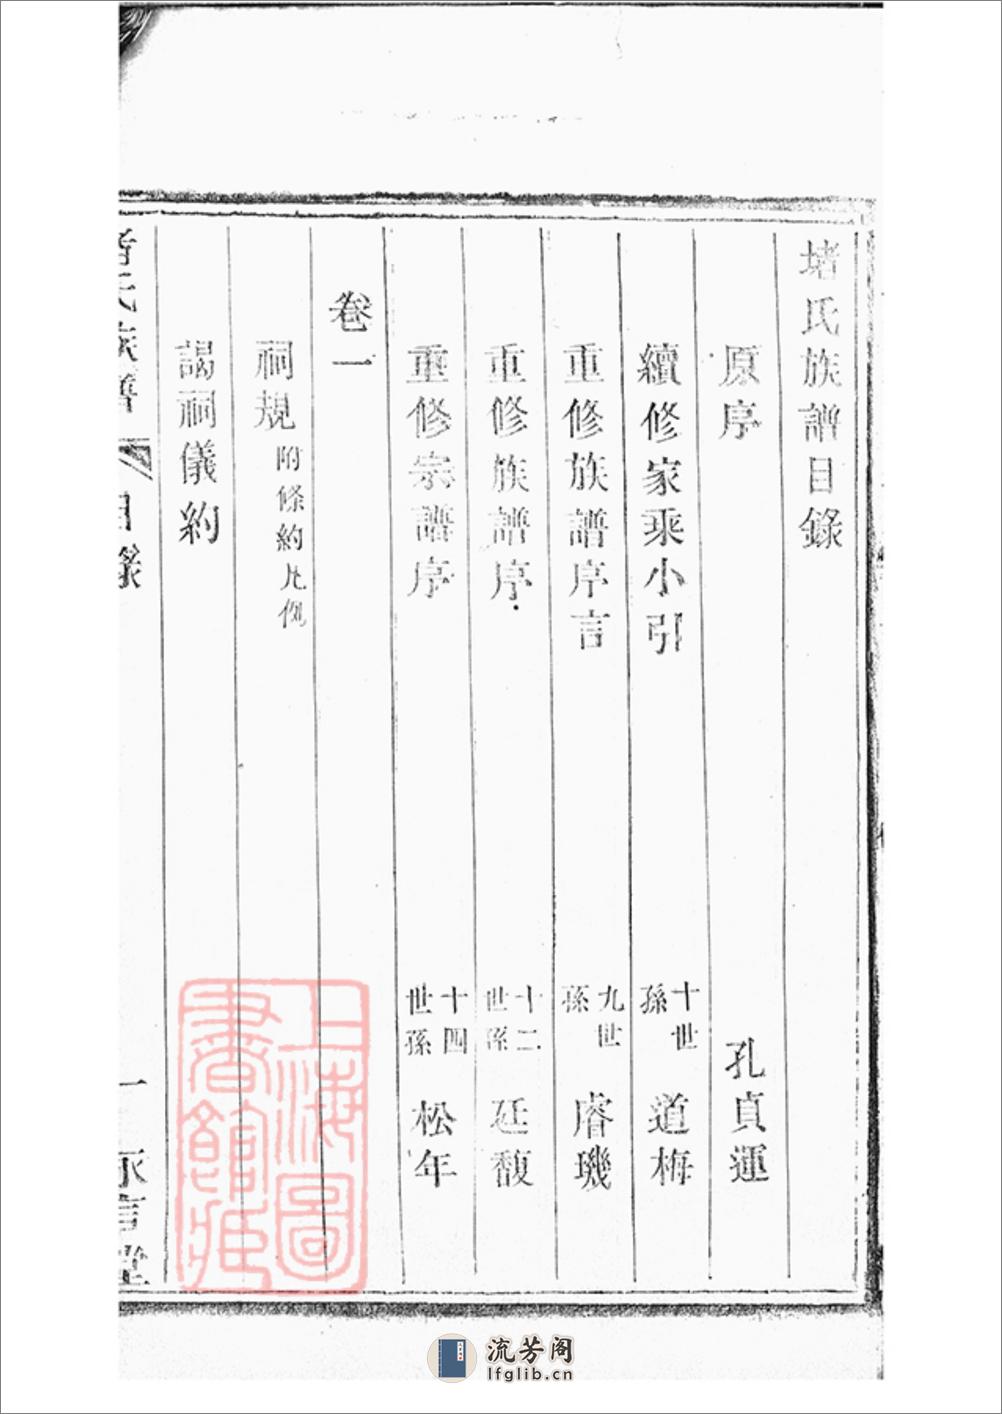 堵氏族譜目錄
原序 孔貞運
續修家乘小引 十世孫 道梅
重修族譜序言 九世孫 睿璣
重修族譜序 十二世孫 廷馥
重修宗譜序 十四世孫 松年
卷一
祠規 附條約凡例
謁祠儀約
堵氏族譜 目錄 一 永言堂
上海圖書館藏
流芳阁
lfglib.cn